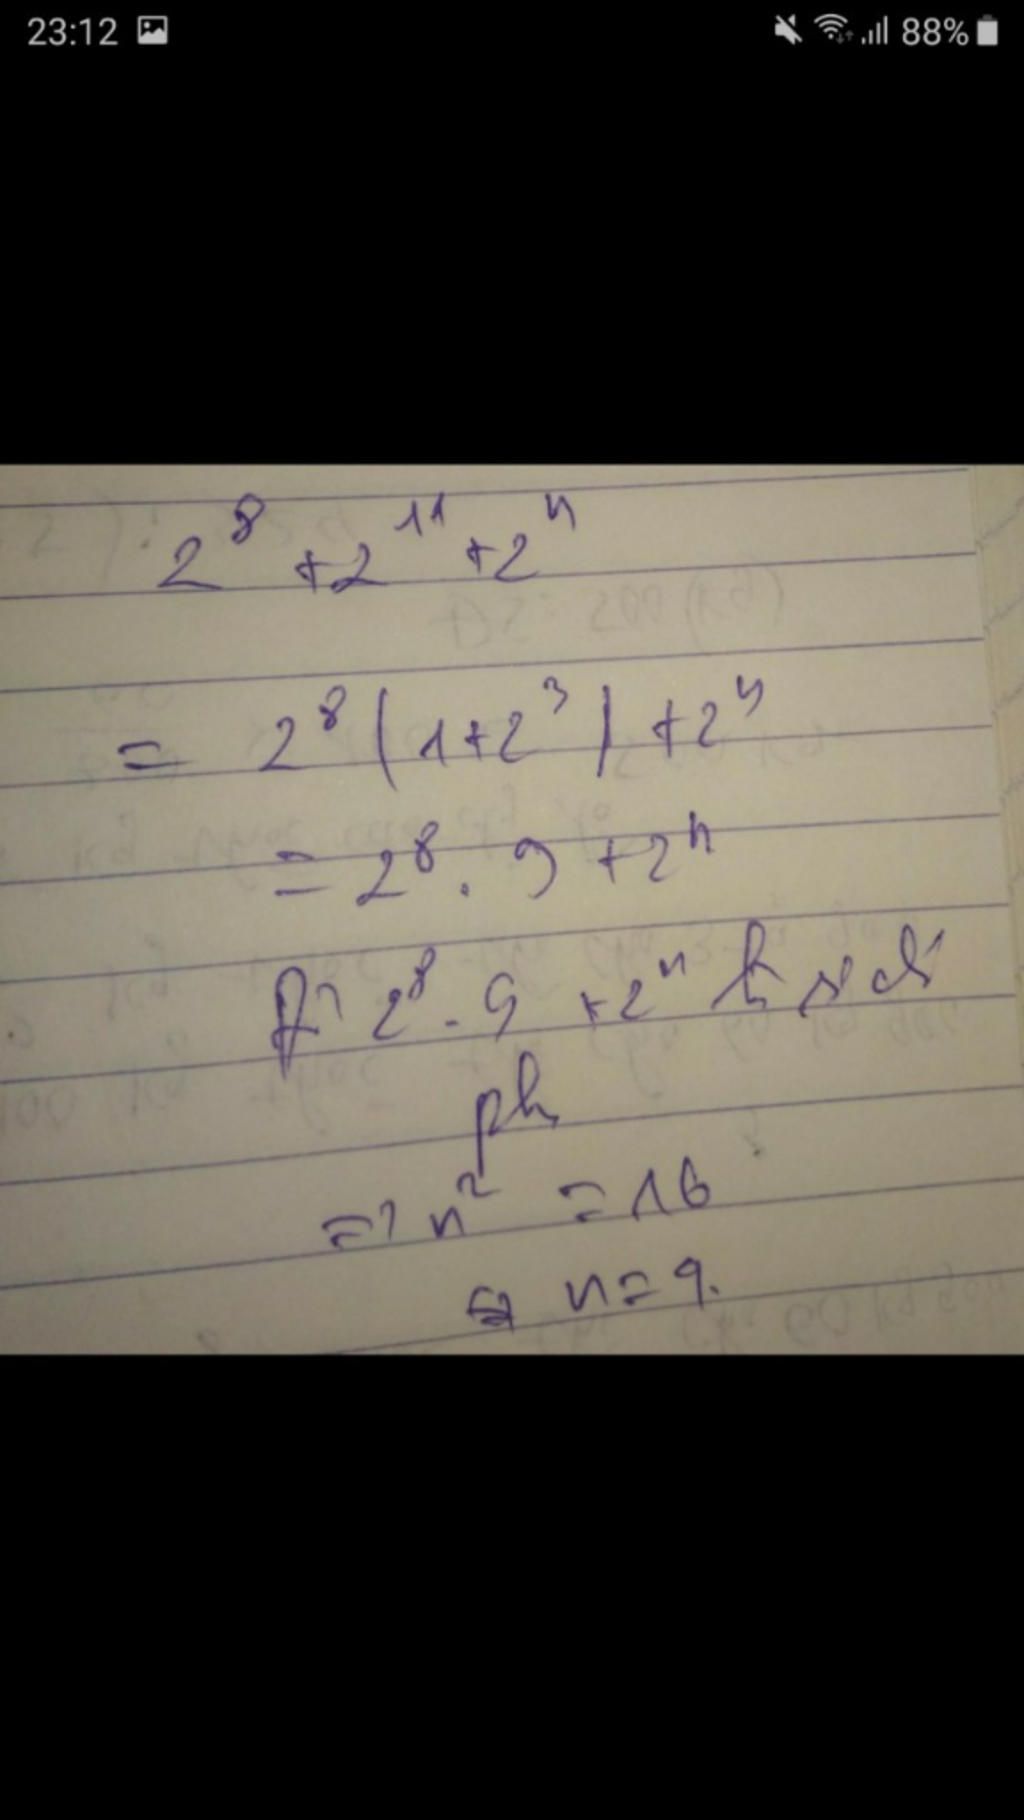 23:12 88%
2⁸ + 2¹¹ + 2ⁿ
= 2⁸ (1+2³) + 2ⁿ
= 2⁸ . 9 + 2ⁿ
2⁸ . 9 + 2ⁿ
=> n² = 16
n = 4.